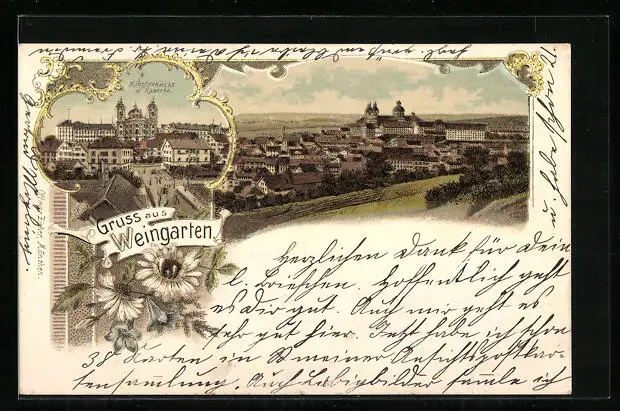 Klosterkirche
u. Kaserne.
Gruss aus
Weingarten.
Herzlichen Dank für Dein
l. Briefchen. Hoffentlich geht
es Dir gut. Auch mir geht es
sehr gut hier. Jetzt habe ich schon
38 Karten in meiner Ansichtspostkar-
tensammlung. Auch Liebigbilder samle ich
u. habe schon 21